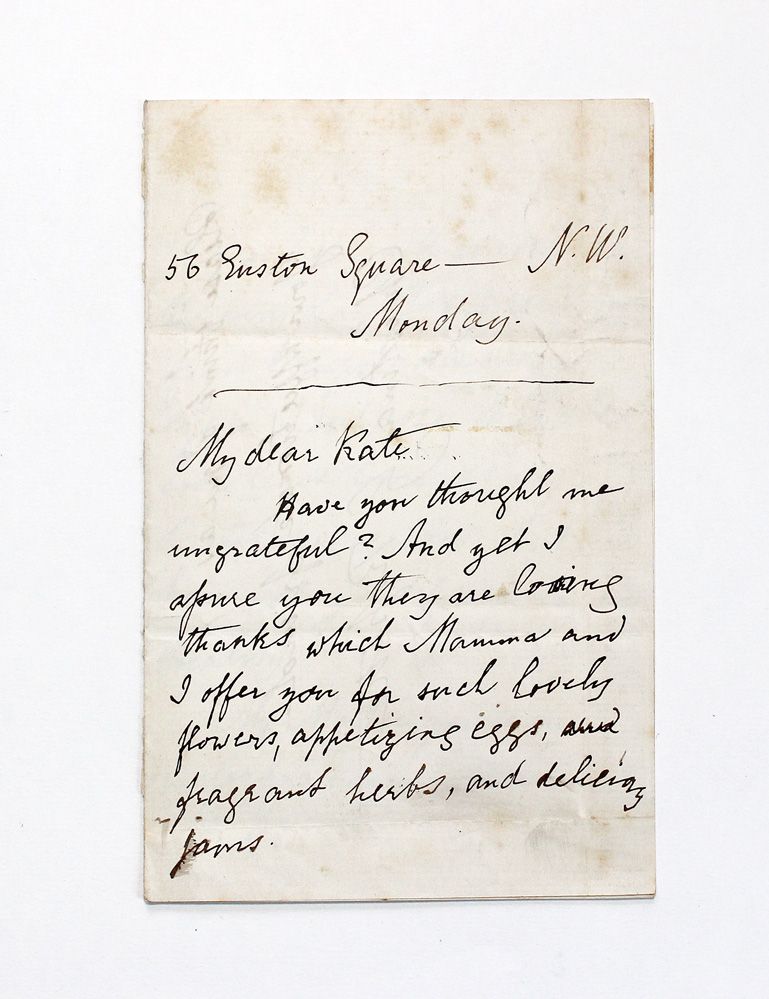 56 Euston Square — N.W.
Monday.
My dear Kate
Have you thought me
ungrateful? And yet I
assure you they are loving
thanks which Mamma and
I offer you for such lovely
flowers, appetizing eggs,
fragrant herbs, and delicious
jams.